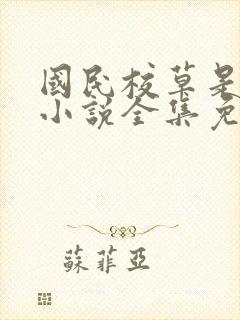 國民校草是
小說全集免
蘇菲亞